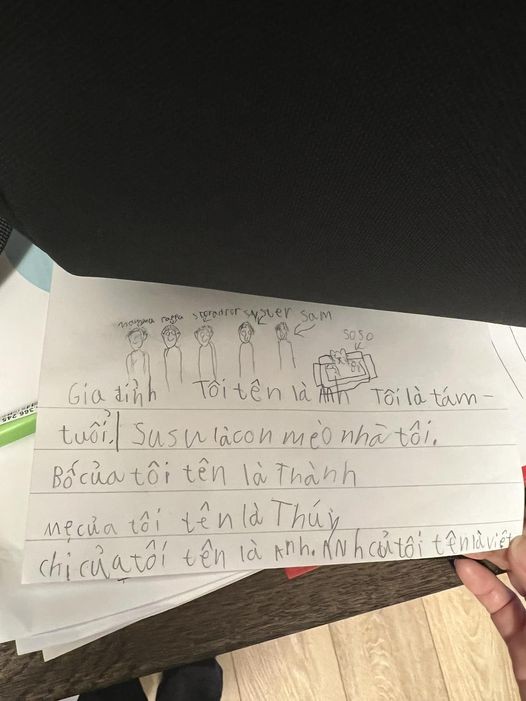 syster sam
soso
Gia đình Tôi tên là Anh Tôi là tám-
tuổi. Susu là con mèo nhà tôi.
Bố của tôi tên là Thành
mẹ của tôi tên là Thúy
chị của tôi tên là Anh. ANh củ tôi tên là việt